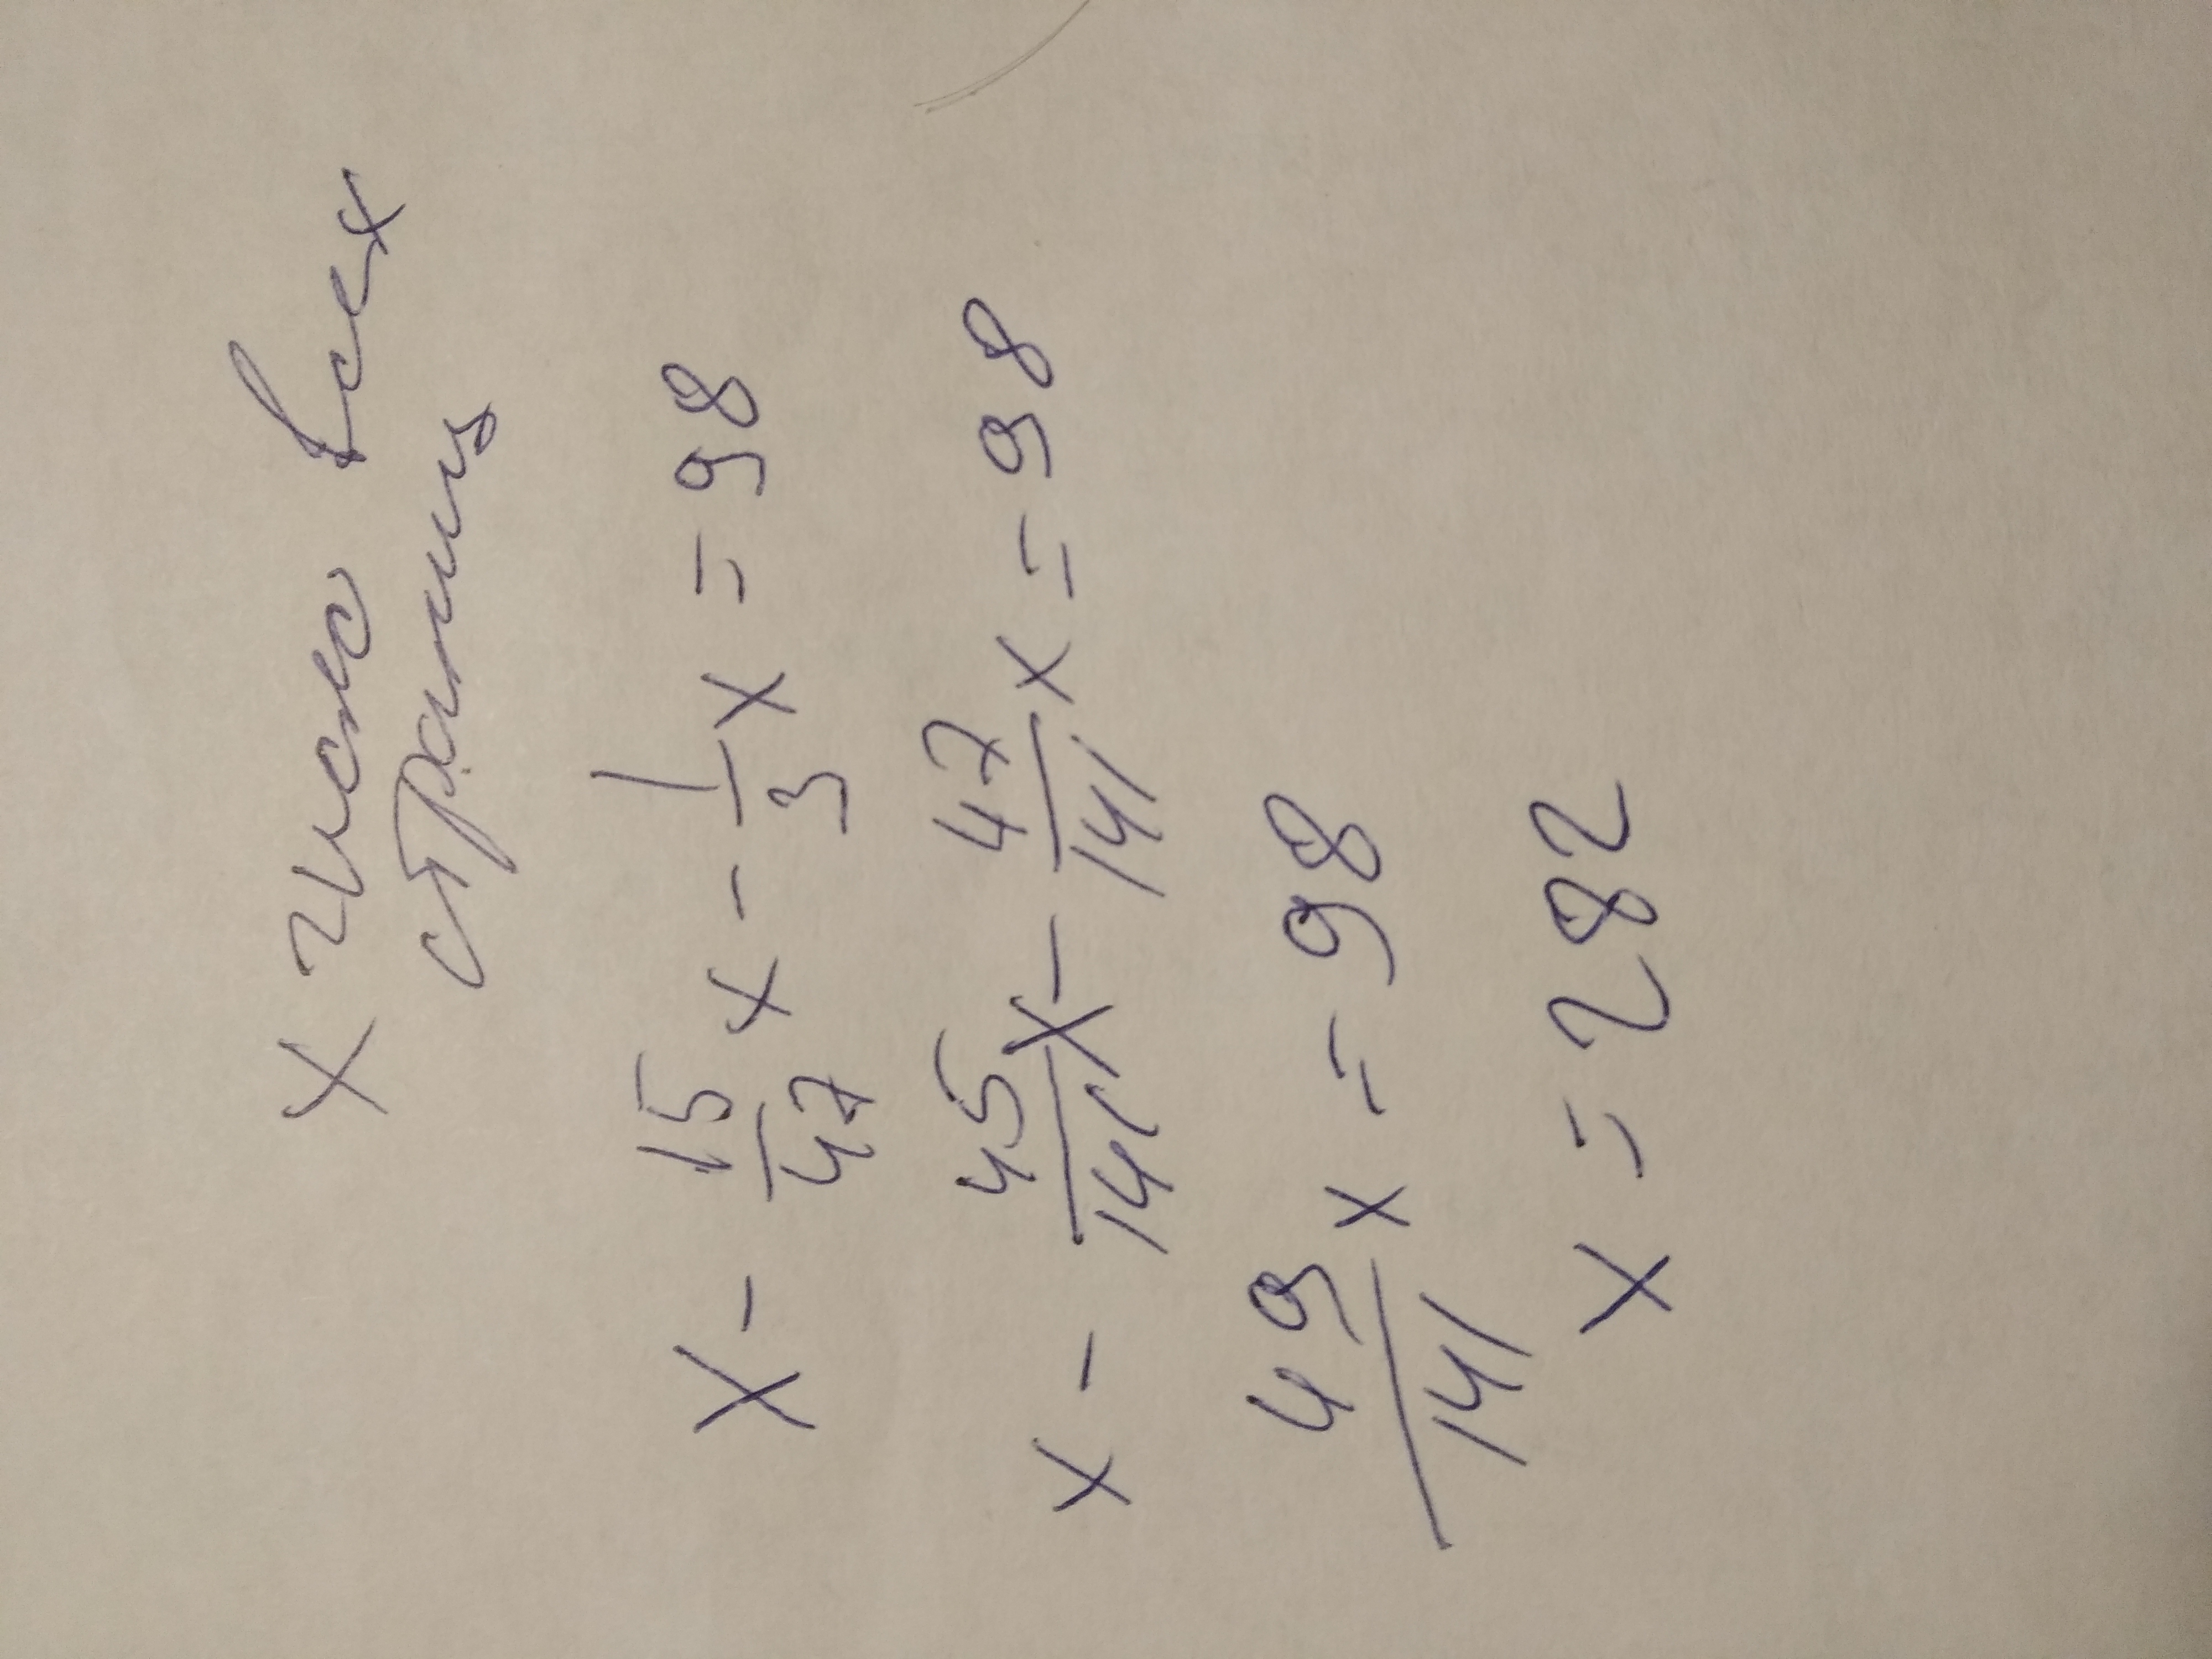 х число всех
страниц
x - 15/47 x - 1/3 x = 98
x - 45/141 x - 47/141 x = 98
49/141 x = 98
x = 282